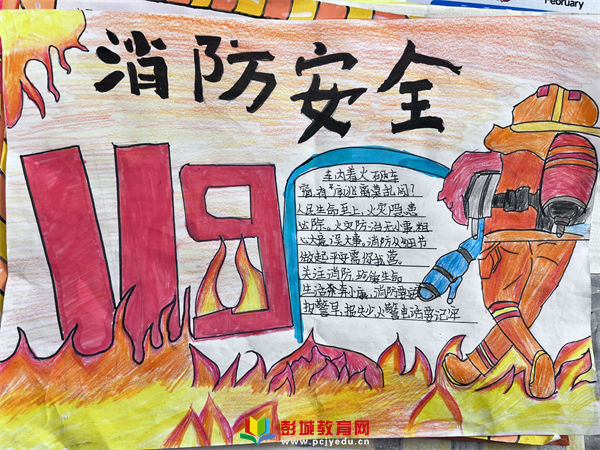 February
消防安全
119
车内着火砸车
窗,有序逃离莫乱闯?
人民生命至上,火灾隐患
必除。火灾防治无小事,粗
心大意误大事。消防从细节
做起,平安需你我意
关注消防,珍惜生命
生活奔小康,消防要
报警早,损失少,火警电话要记牢
彭城教育网
www.pcjyedu.cn